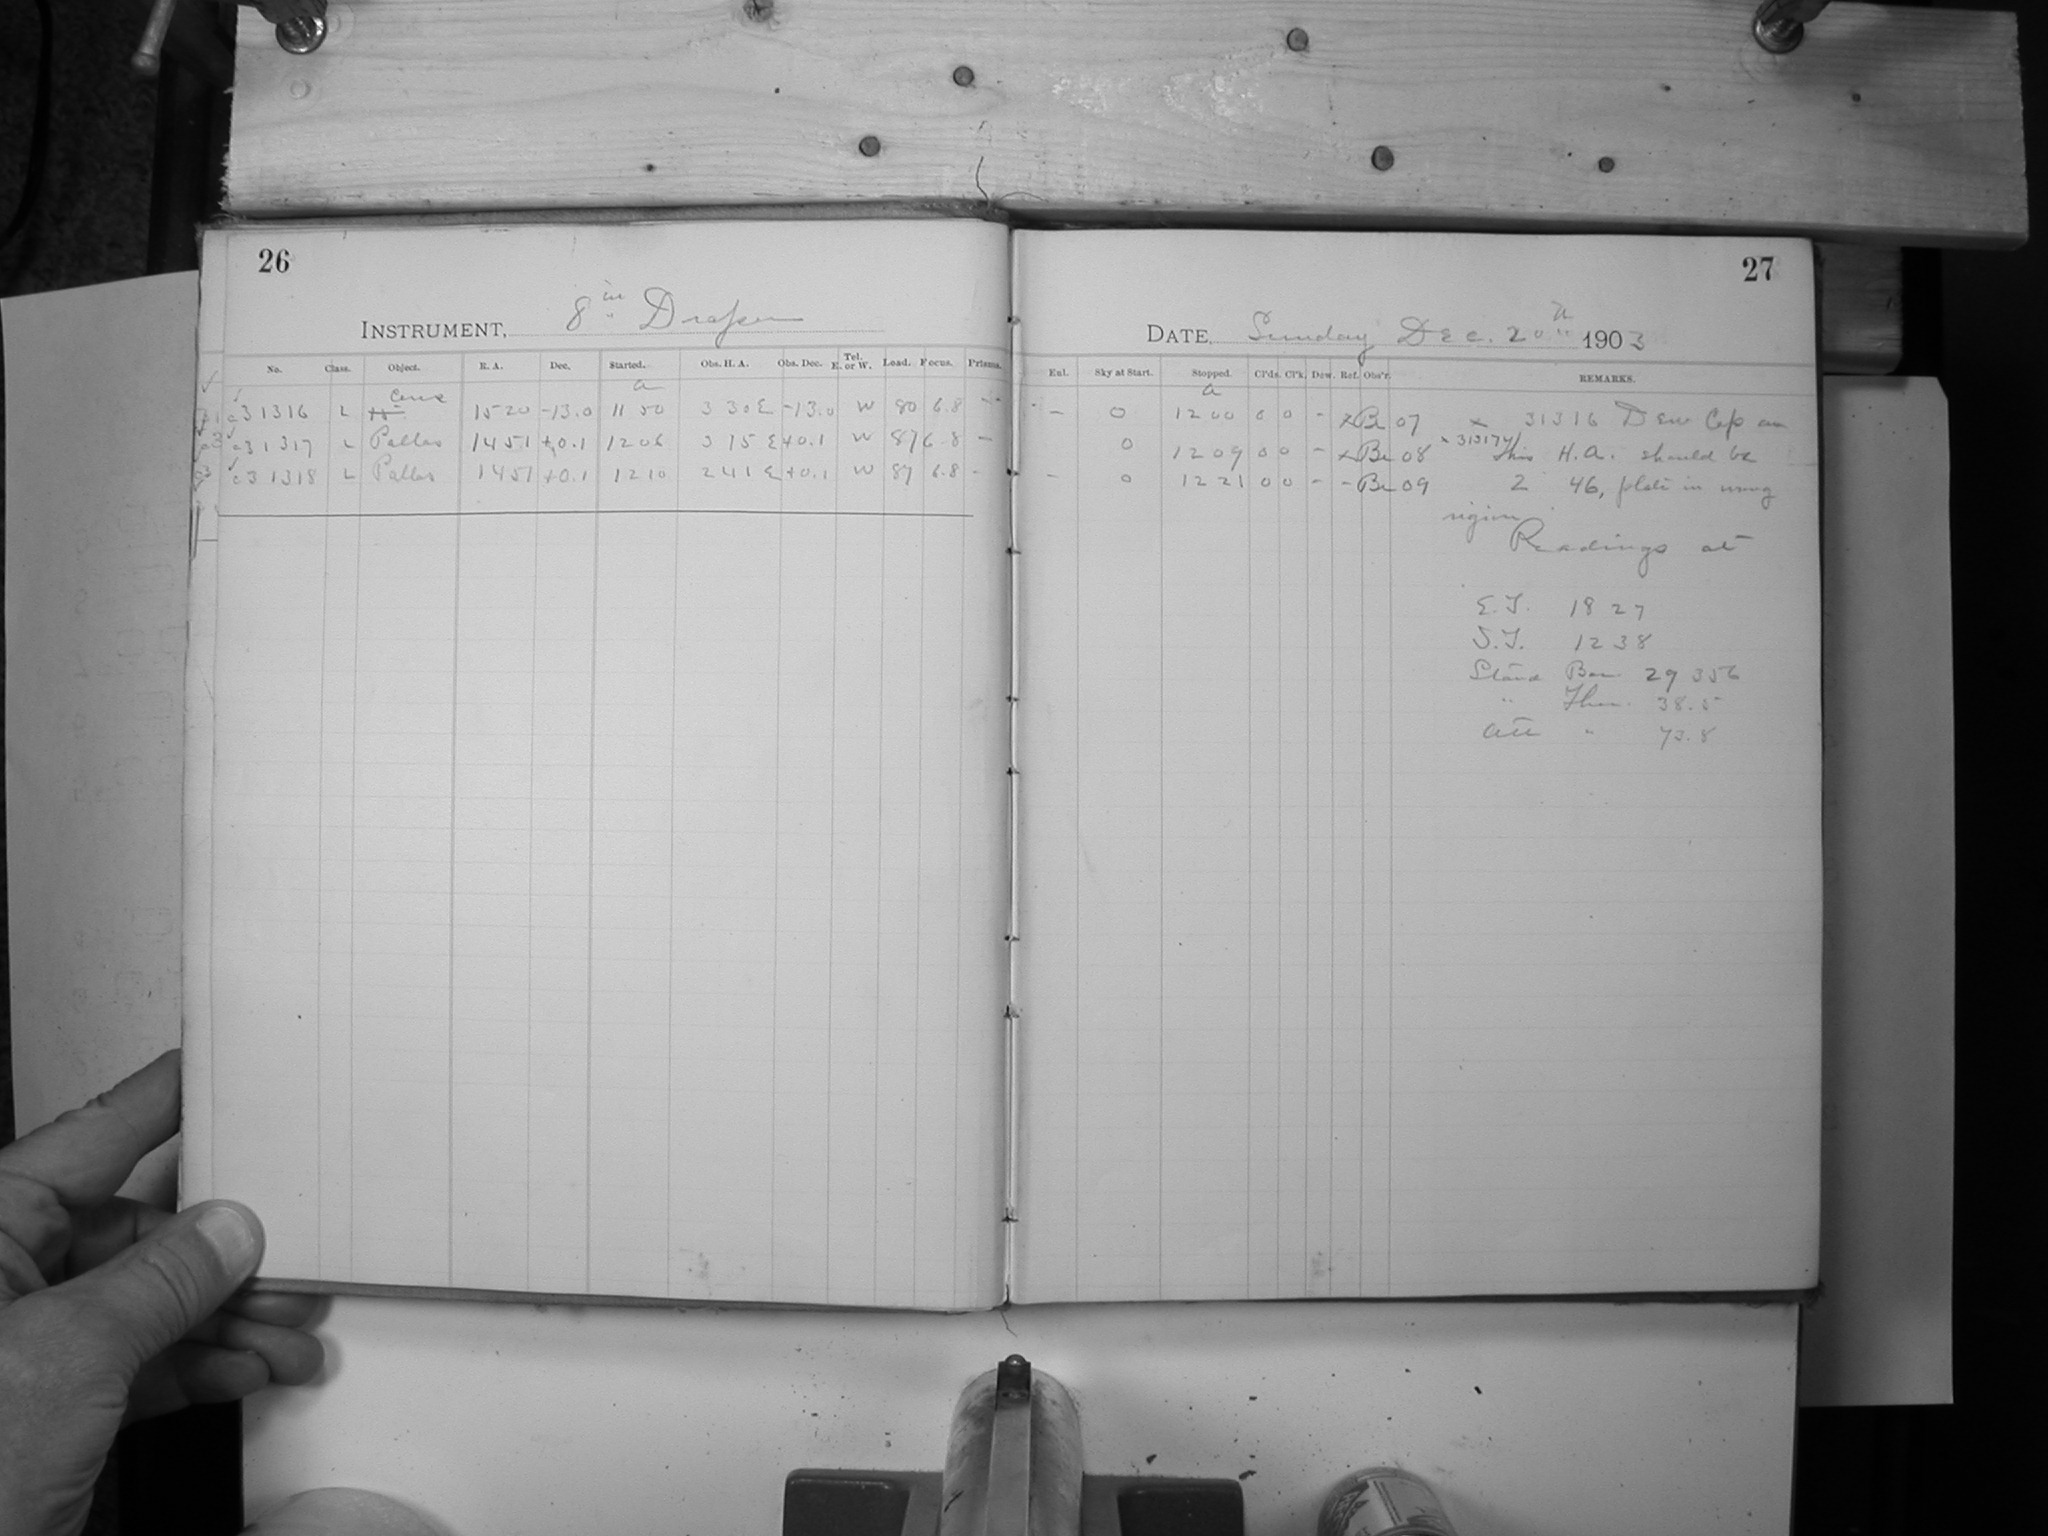 26
INSTRUMENT, 8 in Draper
No. Class. Object. R. A. Dec. Started. Obs. H. A. Obs. Dec. Tel. E. or W. Load. Focus. Prisms.
a
c31316 L 15 20 -13.0 11 50 3 30 E -13.0 W 80 6.8 -
c31317 L Pallas 14 51 +0.1 12 06 3 15 E +0.1 W 87 6.8 -
c31318 L Pallas 14 51 +0.1 12 10 2 41 E +0.1 W 87 6.8 -
27
DATE, Sunday Dec. 20th 1903
Enl. Sky at Start. Stopped. Cl'ds. Cl'k. Dew. Ref. Obs'r. REMARKS.
a
- 0 12 00 0 0 - x Be 07 x 31316 Dew Cap on
0 12 09 0 0 - x Be 08 x 31317 This H.A. should be
- 0 12 21 0 0 - - Be 09 2 46, plate in wrong
region
Readings at
E.T. 18 27
S.T. 12 38
Stand Bar 29 356
" Ther. 38.5
Att " 73.8